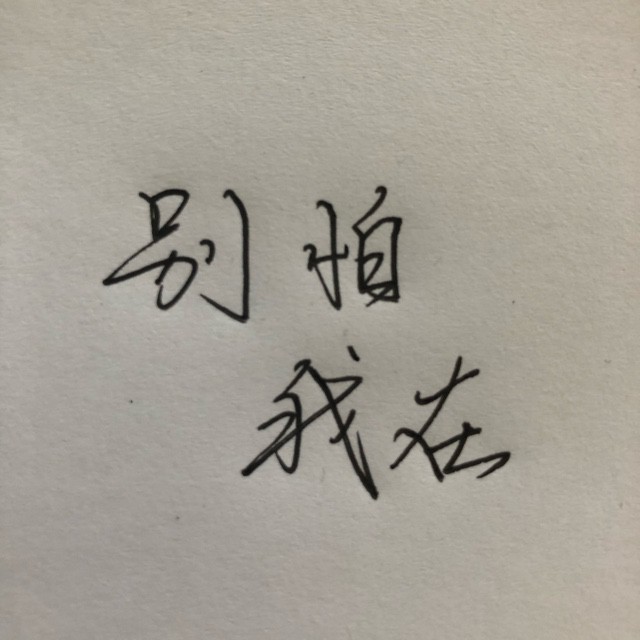 别怕
我在